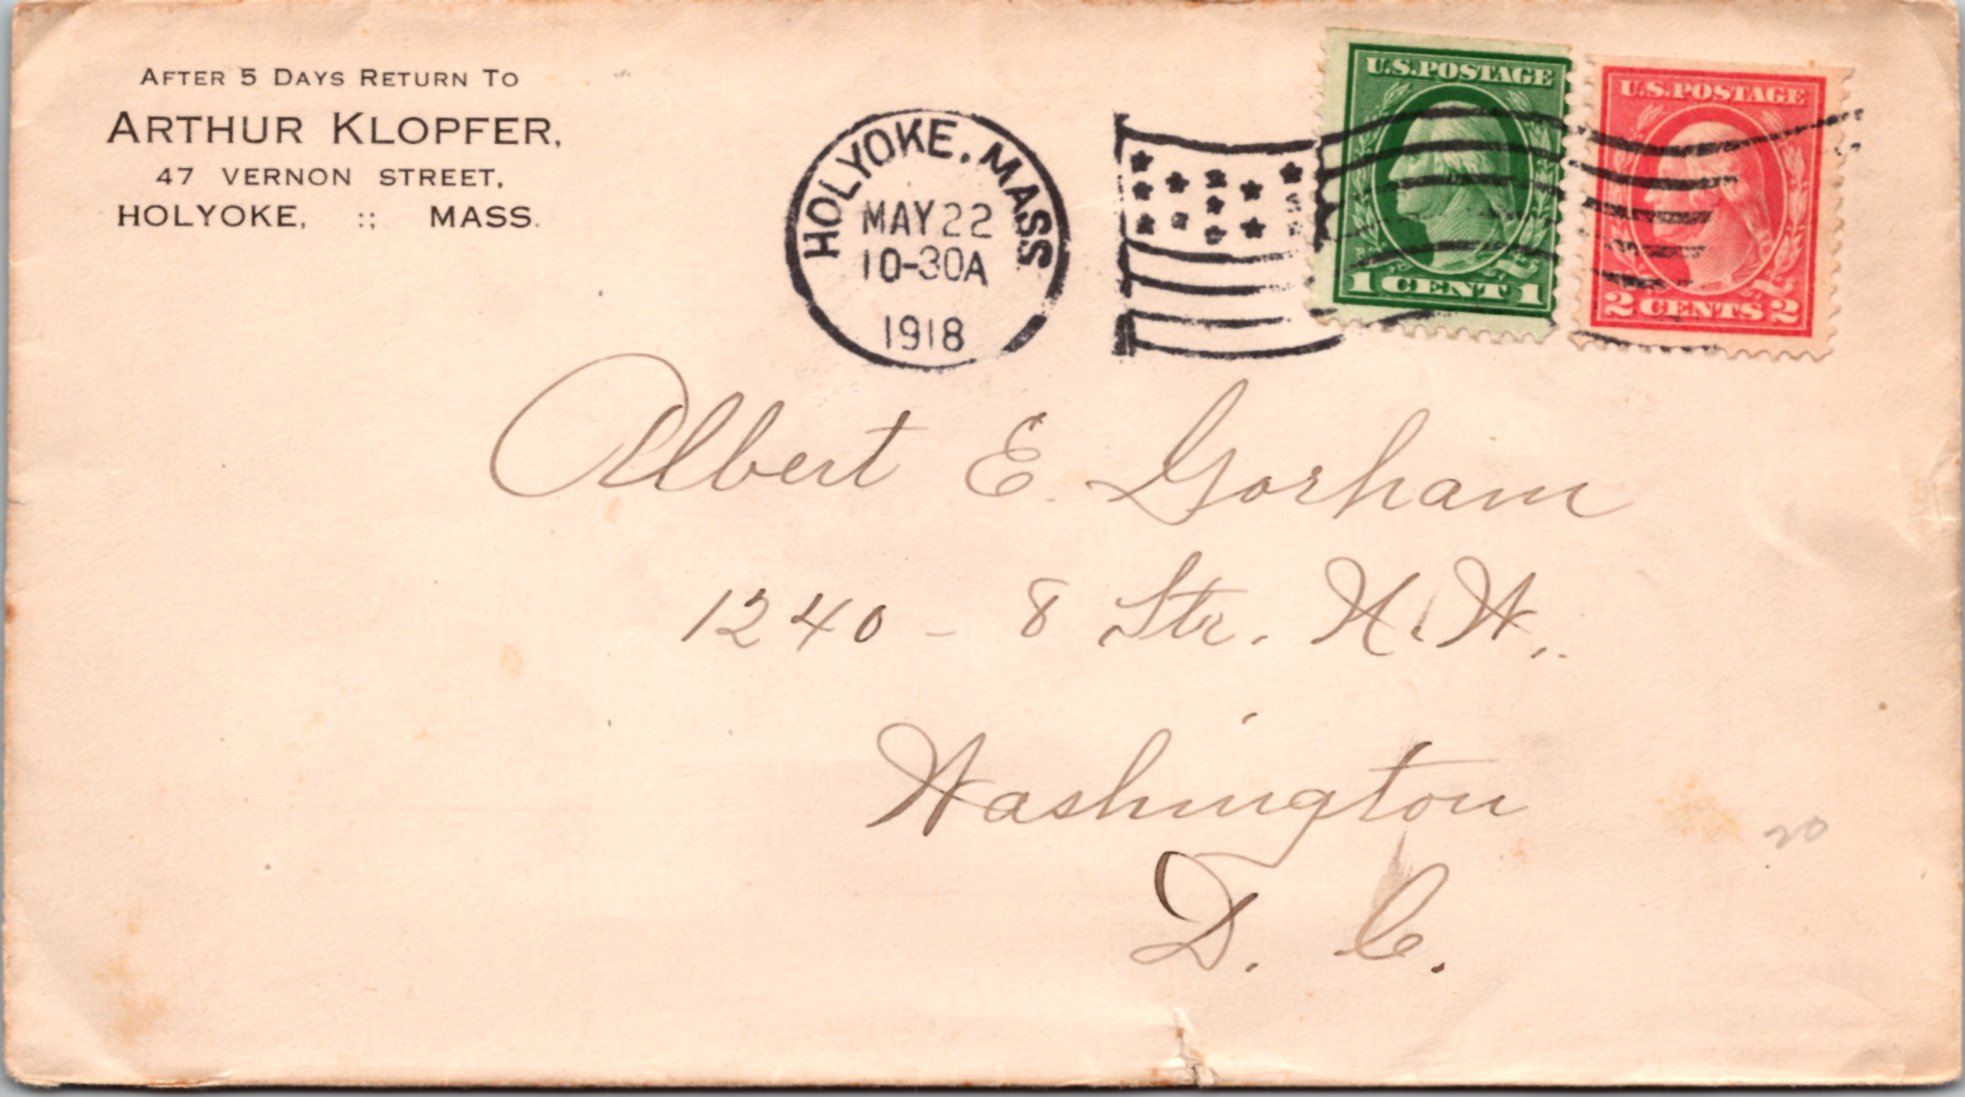 AFTER 5 DAYS RETURN TO
ARTHUR KLOPFER,
47 VERNON STREET,
HOLYOKE, :; MASS.
HOLYOKE, MASS
MAY 22
10-30A
1918
U.S.POSTAGE
1 CENT 1
U.S.POSTAGE
2 CENTS 2
Albert E. Gorham
1240 - 8 Str. N.W.,
Washington
D. C.
20